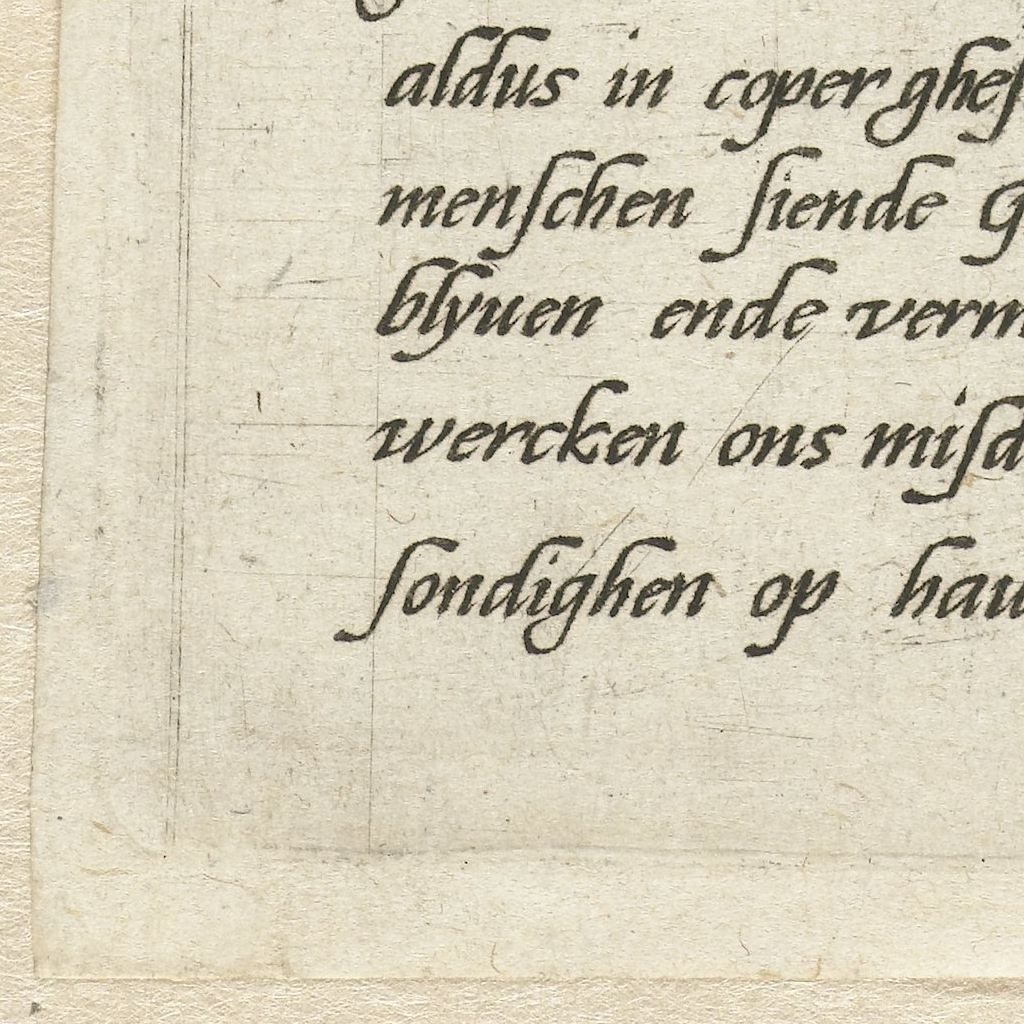 aldus in coper gheſ
menſchen ſiende G
blyuen ende verm
wercken ons miſd
ſondighen op hau